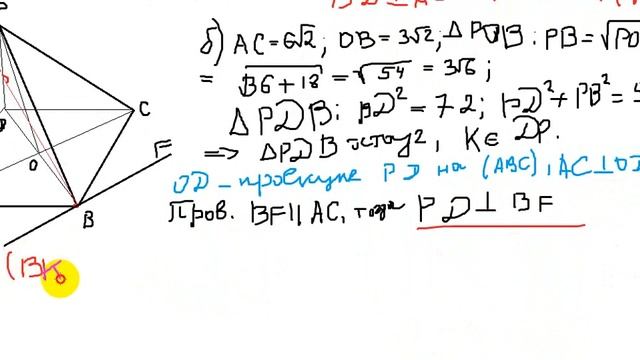 б) AC=6√2; OB=3√2; △POB: PB=√PO
= √36+18 = √54 = 3√6;
△PDB: BD²=72; PD²+PB²=
C
F
=> △PDB остоуг, K∈ DP.
O
OD-проекция PD на (ABC), AC⊥OD
B
Пров. BF∥AC, тогда PD⊥BF
(BK